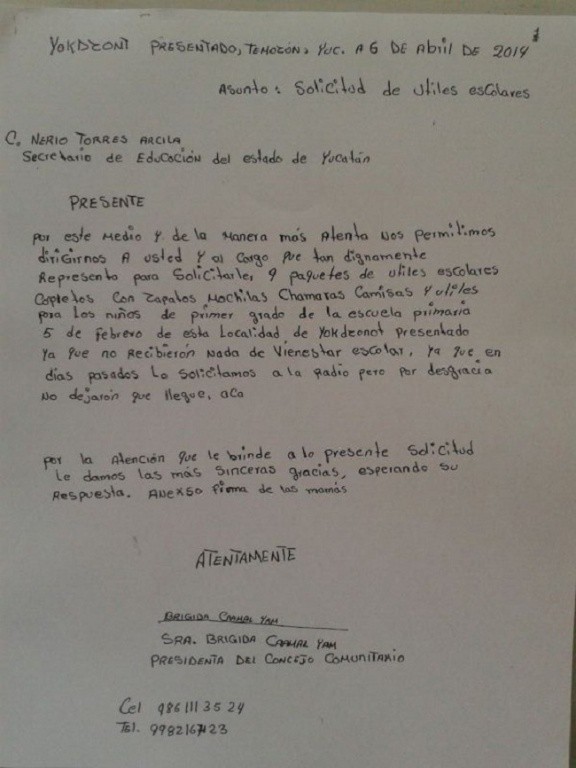 YOKDZONT PRESENTADO, TEMOZÓN, YUC. A 6 DE Abril DE 2014
Asunto: Solicitud de utiles escolares
C. NERIO TORRES ARCILA
Secretario de Educación del estado de Yucatán
PRESENTE
por este Medio y de la Manera más Atenta Nos permitimos
dirigirnos A usted y al cargo que tan dignamente
Representa para Solicitarle, 9 paquetes de utiles escolares
Copletos Con Zapatos Mochilas Chamaras Camisas y utiles
para los niños de primer grado de la escuela primaria
5 de febrero de esta Localidad de Yokdzonot presentado
Ya que no Recibierón Nada de Vienestar escolar, Ya que en
días pasados Lo Solicitamos a la Radio pero por desgracia
No dejarón que llegue, aca
por la Atención que le brinde a la presente Solicitud
Le damos las más Sinceras gracias, esperando su
Respuesta. Anexso firma de las mamás
ATENTAMENTE
BRIGIDA CAAMAL YAM
SRA. BRIGIDA CAAMAL YAM
PRESIDENTA DEL CONCEJO COMUNITARIO
Cel 986 111 35 24
Tel.